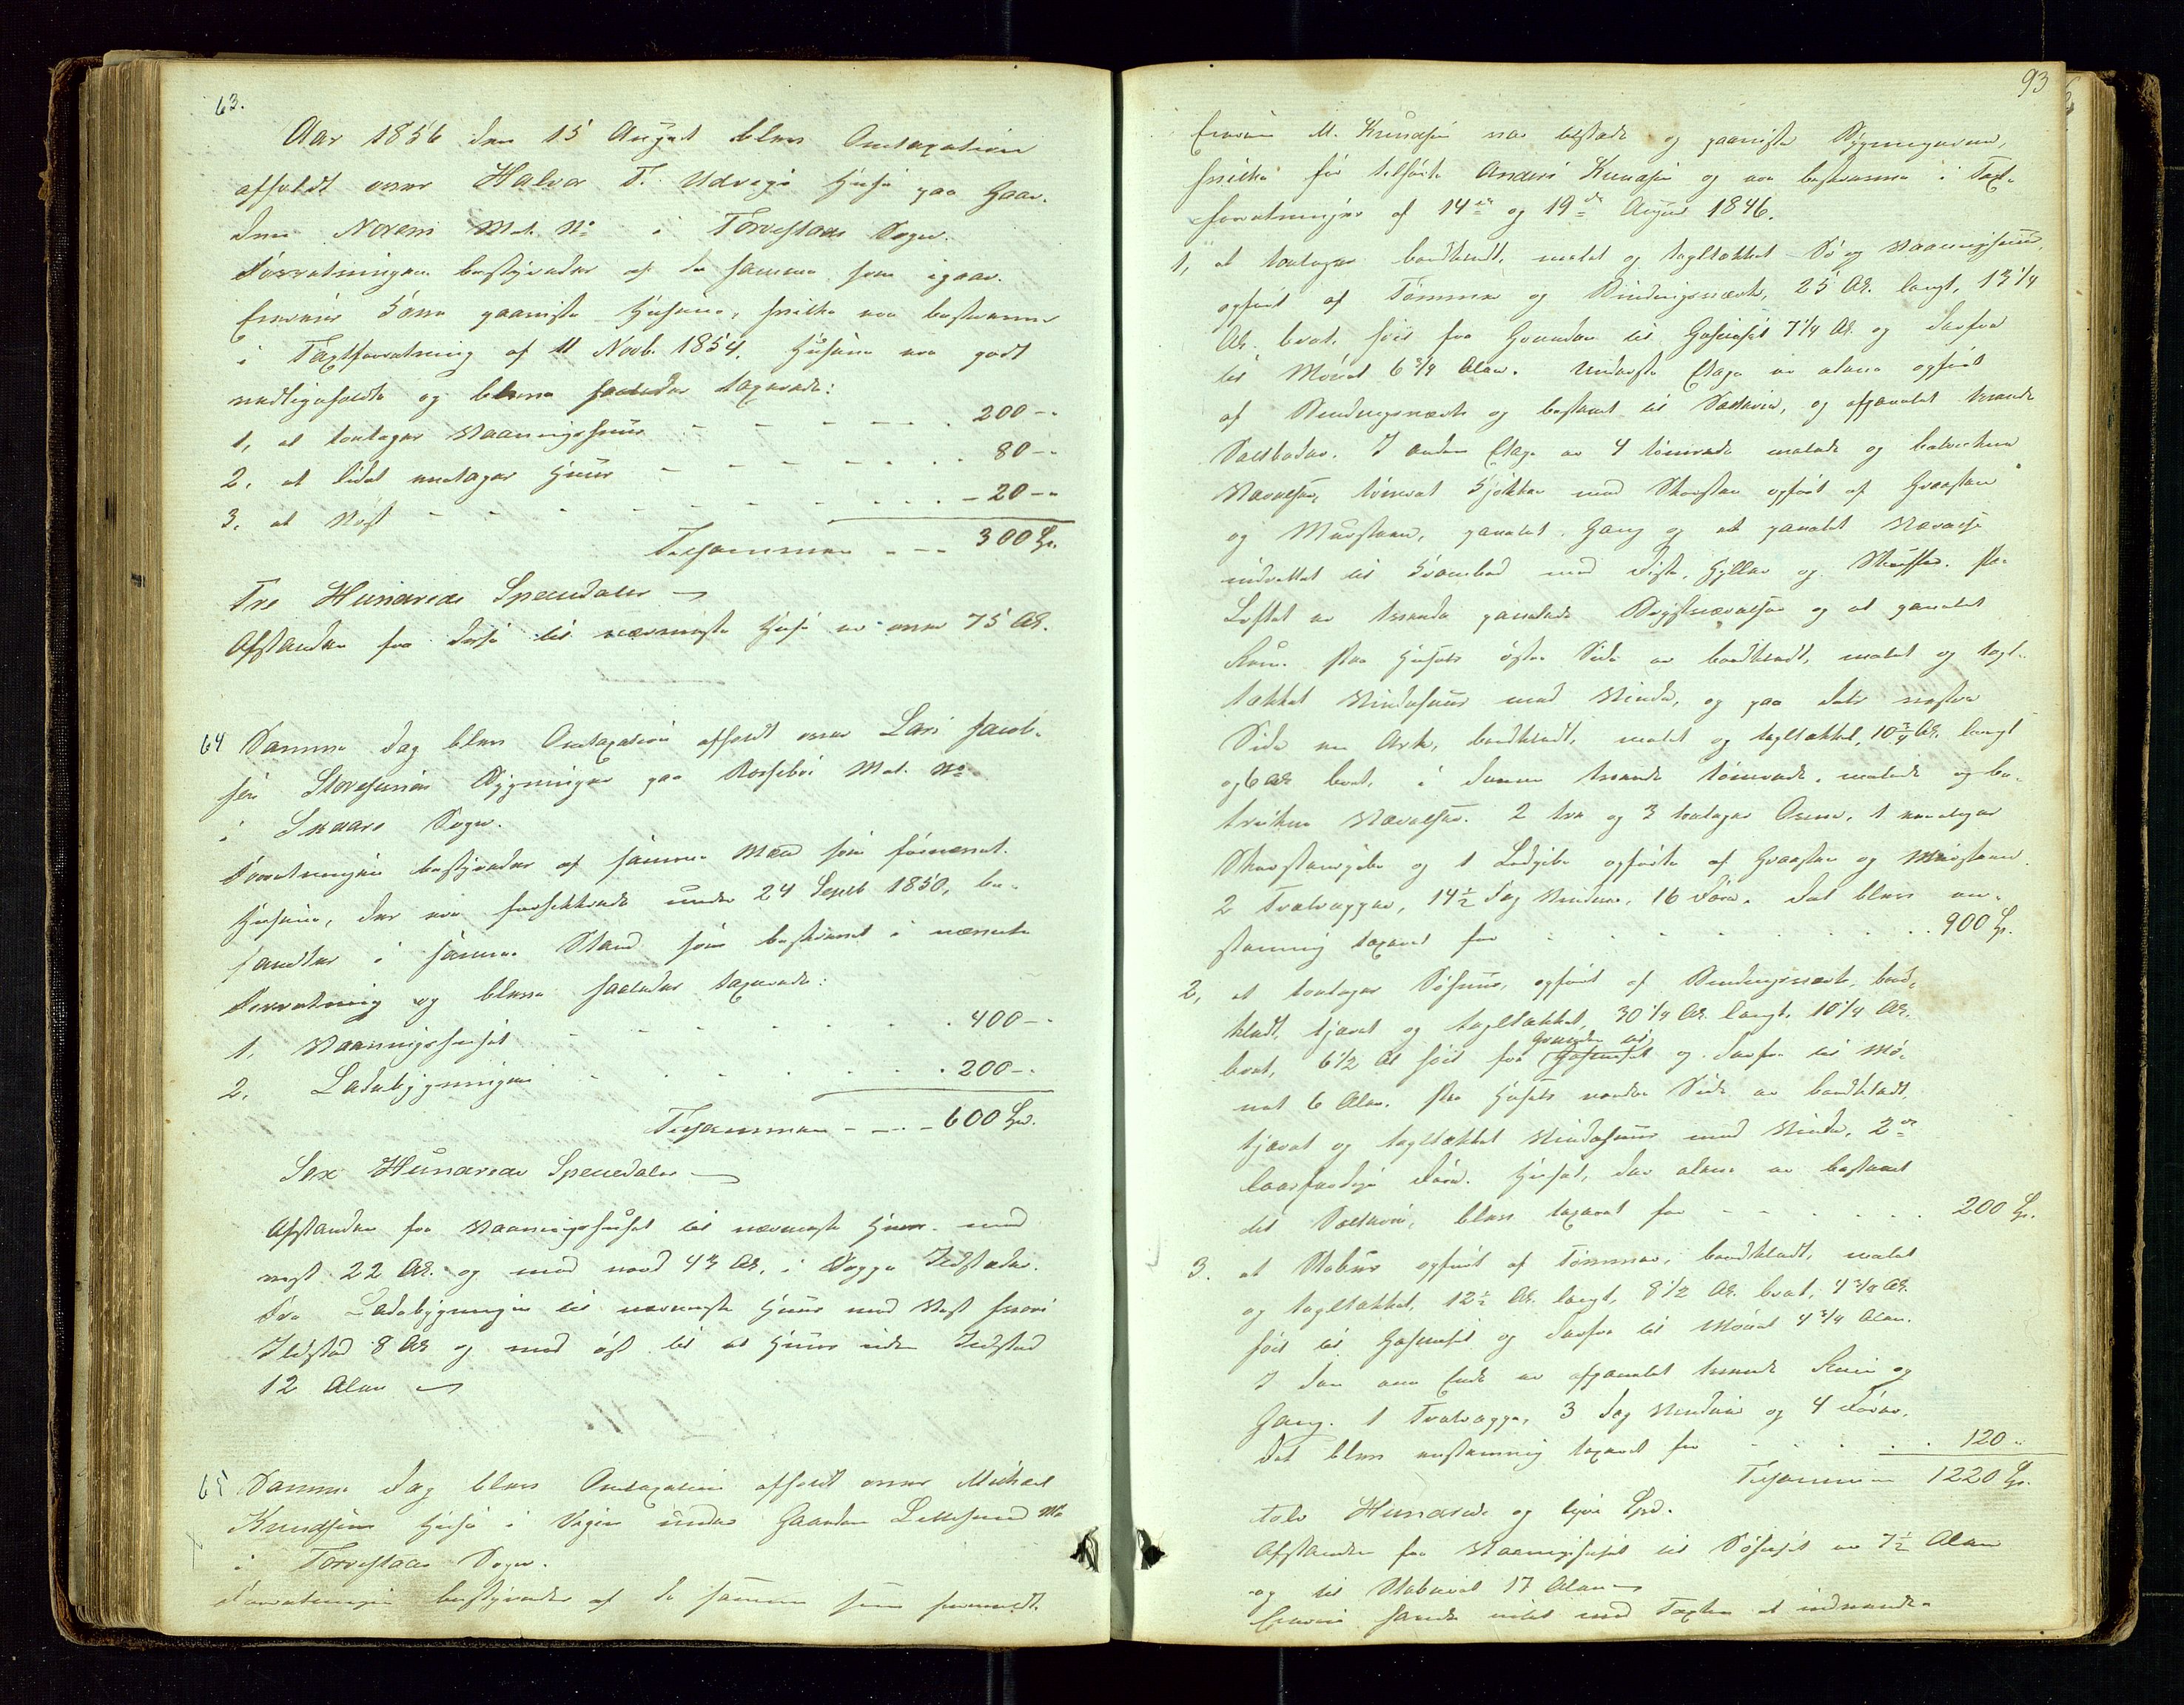 63.
Aar 1856 den 15 August blev Omtaxation
afholdt over Halvor T. Udvigs Huse paa Gaar-
den Norem Mat. No i Torvestads Sogn.
Forretningen bestyredes af de samme som igaar.
Eieren paaviste Husene, hvilke ere beskrevne
i Taxtforretning af 11 Novb. 1854. Husene ere godt
vedligeholdte og bleve saaledes taxerede:
1, et toetages Vaaningshuus - - - - - 200 -
2, et lidet eenetages Huus - - - - - 80 -
3, et Nøst - - - - - - - 20 -
Tilsammen - - - 300 Sp.
Tre Hundrede Speciedaler
Afstanden fra disse til nærmeste Huse er over 75 Al.
64 Samme Dag blev Omtaxation afholdt over Lars Jacob-
sen Storesunds Bygninger paa Rossebø Mat. No
i Skaare Sogn.
Forretningen bestyredes af samme Mænd som fornævnt.
Husene, der ere forsikkrede under 24 Septb 1850, be-
fandtes i samme Stand som beskrevet i nævnte
Forretning og bleve saaledes taxerede:
1, Vaaningshuset - - - - - 400 -
2, Ladebygningen - - - - - 200 -
Tilsammen - - - 600 Sp.
Sex Hundrede Speciedaler
Afstanden fra Vaaningshuset til nærmeste Huus mod
vest 22 Al. og mod nord 43 Al. i begge Ildsteder.
Fra Ladebygningen til nærmeste Huus mod Vest hvori
Ildsted 8 Al og mod øst til et Huus uden Ildsted
12 Alen
65 Samme Dag blev Omtaxation afholdt over Michael
Knudsens Huse i Vigen under Gaarden Lillesund No
i Torvestads Sogn.
Forretningen bestyredes af de samme som fornævnt.
93
Eieren M. Knudsen var tilstede og paaviste Bygningerne,
hvilke før tilhørte Anders Knudsen og ere beskrevne i Taxt-
forretninger af 14de og 19de August 1846.
1, et toetages bordklædt, malet og tagltækket Sø og Vaaningshuus,
opført af Tømmer og Bindingsværk, 25 Al. langt, 13 1/4
Al. bredt, høit fra Grunden til Gesimset 7 1/4 Al. og derfra
til Mønet 6 3/4 Alen. Underste Etage er alene opført
af Bindingsværk og bestemt til Salteri, og afpanelet tvende
Saltboder. I anden Etage er 4 tømrede malede og betrukne
Værelser, tømret Kjøkken med Skorsten opført af Graasteen
og Muursteen, panelet Gang og et panelet Værelse
indrettet til Krambod med Disk, Hylder og Skuffer. Paa
Loftet er tvende panelede Qvistværelser og et panelet
Rum. Paa Husets østre Side er bordklædt, malet og tagl-
tækket Vindehuus med Vinde, og paa dets vestre
Side en Ark, bordklædt, malet og tagltækket, 10 3/4 Al. langt
og 6 Al bred, i denne tvende tømrede, malede og be-
trukne Værelser. 2 tre og 3 toetages Ovne, 1 eenetages
Skorsteenspibe og 1 Lodpibe opførte af Graasteen og Muursteen.
2 Trætrapper, 14 1/2 Fag Vinduer, 16 Døre. Det blev een-
stemmig taxeret for - - - - - 900 Sp.
2, et toetages Søhuus, opført af Bindingsværk, bord-
klædt, tjæret og tagltækket, 30 1/4 Al. langt, 10 1/4 Al.
bredt, 6 1/2 Al høit fra Grunden til Gesimset og derfra til Mø-
net 6 Alen. Paa Husets nordre Side er bordklædt,
tjæret og tagltækket Vindehuus med Vinde, 2de
laasfærdige Døre. Huset, der alene er bestemt
til Salteri, blev taxeret for - - - - - 200 Sp.
3. et Stabur opført af Tømmer, bordklædt, malet
og tagltækket, 12 1/2 Al. langt, 8 1/2 Al. bredt, 4 3/4 Al.
høit til Gesimset og derfra til Mønet 4 3/4 Alen.
I den ene Ende er afpanelet tvende Rum og
Gang. 1 Trætrappe, 3 Fag Vinduer og 4 Døre.
Det blev eenstemmig taxeret for - - - - 120 "
Tilsammen 1220 Sp.
Tolv Hundrede og tyve Spd.
Afstanden fra Vaaningshuset til Søhuset er 7 1/2 Alen
og til Staburet 17 Alen
Eieren havde intet mod Taxten at indvende